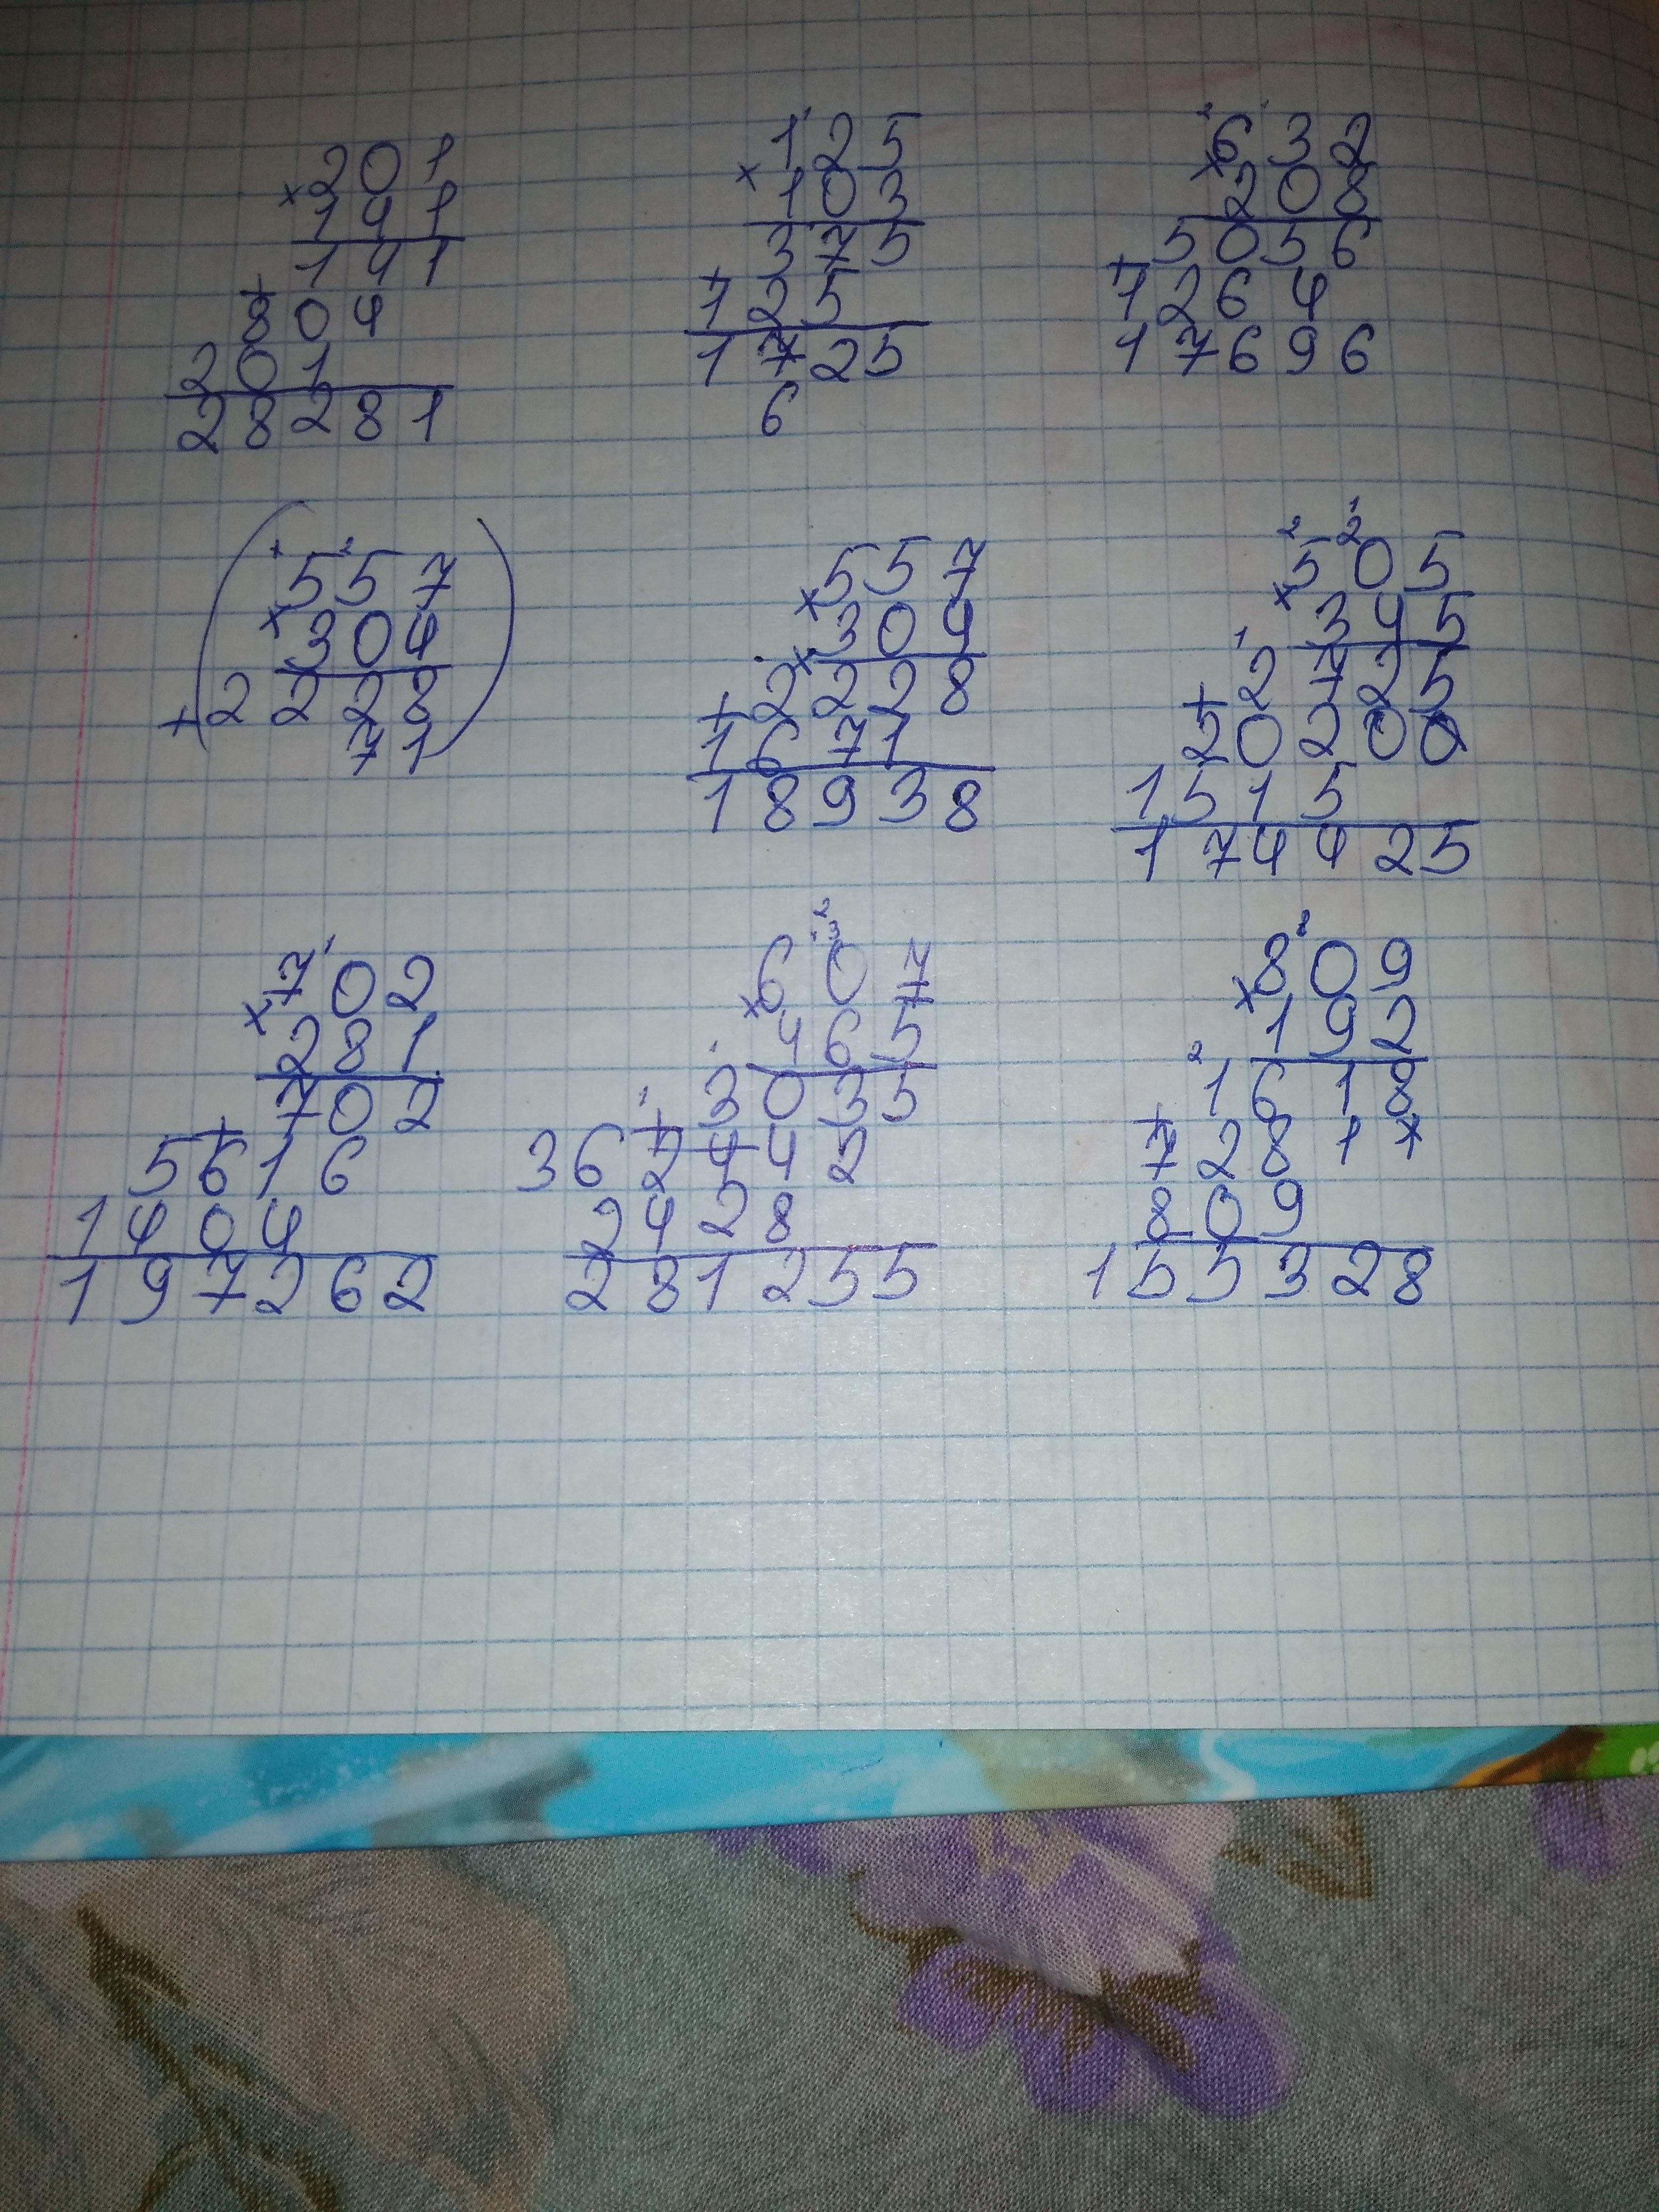 201
×141
141
+804
201
28281
125
×103
375
+125
1725
6
632
×208
+5056
1264
17696
(557
×304
+2228
71)
557
×304
+2228
1671
18938
505
×345
+2725
20200
1515
174425
702
×281
+702
5616
1404
197262
607
×465
+3035
362442
2428
281255
809
×192
+1618
7281
809
155328